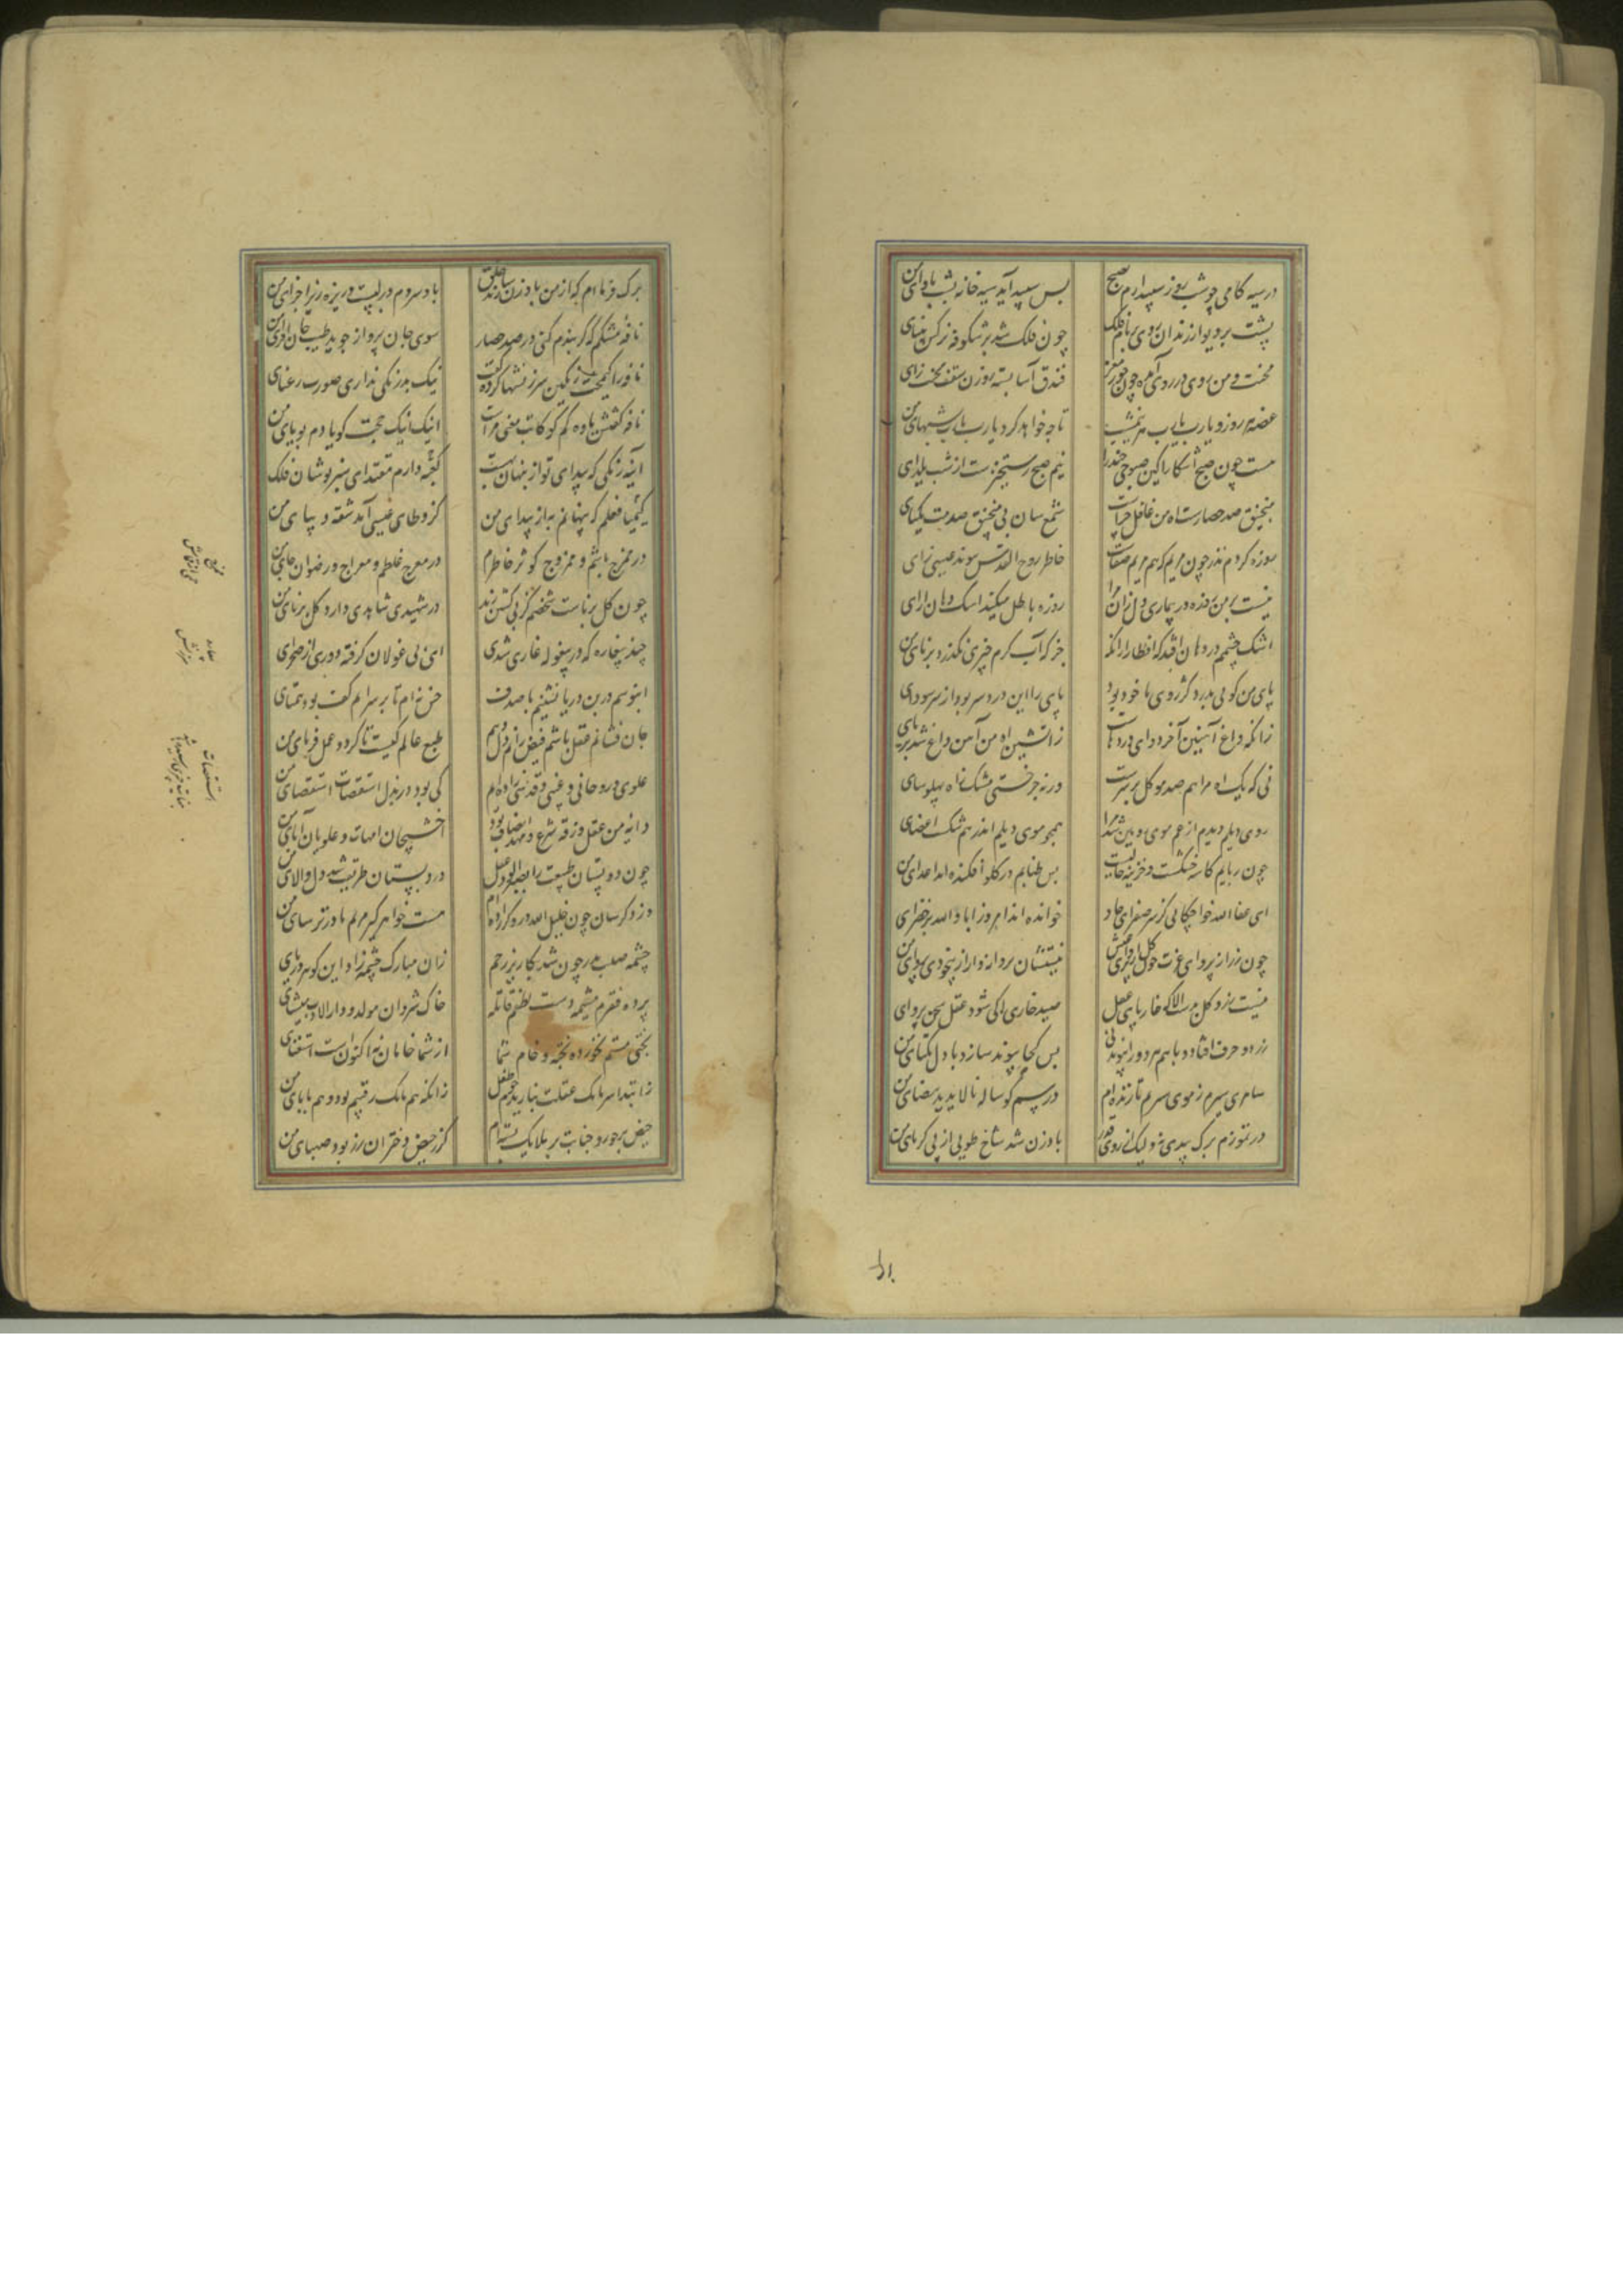 در سیه کامی چو شب روز سپید آرم چو صبح پس سپید آید سیه خانه بشب ماوای من
پشت بر دیوار زندان روی بر بام فلک چون فلک شد پر شکوفه نرگس بینای
محنت و من روی در روی آمده چون جوز مغز فندق آسا بسته روزن سقف محنت زای
غصه هر روز و یارب یارب هر نیمشب تا چه خواهد کرد یارب یارب شبهای من
هست چون صبح آشکارا کین صبوحی چند را بیم صبح رستخیزست از شب یلدای
منجنیق صد حصارست آه من غافل چراست شمع سان بی منجنیق صدمت نکبای
روزه کردم نذر چون مریم که هم مریم صفاست خاطر روح القدس پیوند عیسی زای
نیست بر من روزه در بیماری دل زان مرا روزه باطل میکند اشک دهان آلای
اشک چشمم در دهان افتد که افطار از آنکه جز که آب گرم چیزی نگذرد بر نای من
پای من گویی بدرد کژروی ماخوذ بود پای را این درد سر بود از سر سودای
زانکه داغ آهنین آخر دوای دردهاست زآتشین آه من آهن داغ شد بر پای
نی که یک آه مرا هم صد موکل بر سرست ورنه چرخستی مشبک زآه پهلوسای
روی دیلم دیدم از غم موی زوبین شد مرا همچو موی دیلم اندر هم شکست اعضای
چون ربابم کاسه خشکست و خزینه خالیست پس طنابم در گلو افکنده اند اعدای من
ای عفا الله خواجگانی کز سر صفرای جاه خوانده اند امروز اباد الله بر خضرای
چون زر از پروای عزت
نیست زر و گل بدست الا که خار پای عقل صید خاری کی شود عقل سخن پروای
زر دو حرف افتاد و با هم هر دو را پیوند نی پس کجا پیوند سازد با دل یکتای من
سامری سیرم نه موسی سیرم تا زنده ام در سم گوساله آلاید ید بیضای من
در تموزم برگ بیدی نه ولیک از روی قدر بادزن شد شاخ طوبی از پی گرمای من
برگ خرما ام که از من بادزن سازند خلق باد سردم در لبست و ریزه ریز اجزای من
نافه مشکم که گر بندم کنی در صد حصار سوی جان پرواز جوید طیب جان افزای من
نافه را کیمخت رنگین سرزنشها کرد و گفت نیک بدرنگی نداری صورت رعنای
نافه گفتش یاوه کم گو کایت معنی مراست اینک اینک حجت گویا دم بویای من
آینه رنگی که پیدای تو از پنهان بهست کعبه وارم مقتدای سبز پوشان فلک
کیمیا فعلم که پنهانم به از پیدای من کز وطای عیسی آمد شقه دیبای من
در ممزج باشم و ممزوج کوثر خاطرم در معرج غلطم و معراج رضوان جای من
چون گل رعناست شخصم کز پی کشتن زید در شهیدی شاهدی دارد گل رعنای من
چند بیغاره که در بیغوله غاری شدی ای پی غولان گرفته دوری از صحرای
آبنوسم در بن دریا نشینم با صدف خس نه ام تا بر سر آیم کف بود همتای
جان فشانم عقل پاشم فیض رانم دل دهم طبع عالم کیست تا گردد عمل فرمای من
علوی و روحانی و غیبی و قدسی زاده ام کی بود در بند استقصات استقصای من
دایه من عقل و زقه شرع و مهد انصاف بود آخشیجان امهات و علویان آبای من
چون دو پستان طبیعت را بصبر آلود عقل در دبستان طریقت شد دل والای من
وز دگرسان چون خلیل الله دروگرزاده ام هست خواهر گیر مادر ترسای من
چشمه صلب پدر چون شد بکاریز رحم زان مبارک چشمه زاد این گوهر دریای
پرده فقرم مشیمه دست لطفم قابله خاک شروان مولد و دار الادب منشای
بختی مستم نخورده پخته و خام شما از شما خامان نه اکنون است استغنای
زابتدا سرمامک غفلت نبازیدم چو طفل زانکه هم مامک رقیبم بود و هم بابای من
حیض بر حور و جنابت بر ملایک بسته ام گر ز حیض دختران رز بود صهبای من